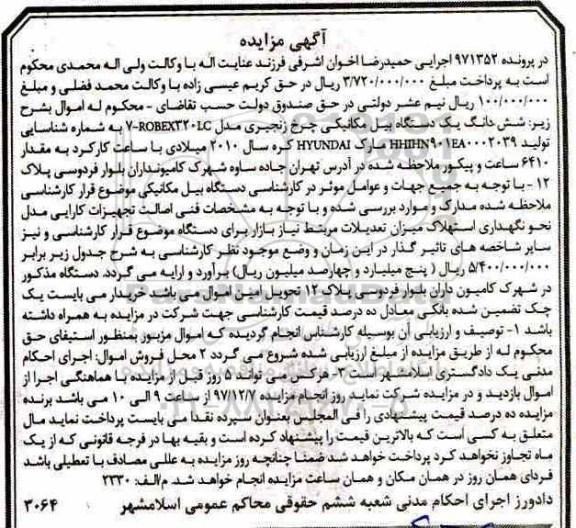 آگهی مزایده
در پرونده ۹۷۱۳۵۲ اجرایی حمیدرضا اخوان اشرفی فرزند عنایت اله با وکالت ولی اله محمدی محکوم
است به پرداخت مبلغ ۳/۷۲۰/۰۰۰/۰۰۰ ریال در حق کریم عیسی زاده با وکالت محمد فضلی و مبلغ
۱۰۰/۰۰۰/۰۰۰ ریال نیم عشر دولتی در حق صندوق دولت حسب تقاضای - محکوم له اموال بشرح
زیر: شش دانگ یک دستگاه بیل مکانیکی چرخ زنجیری مدل ROBEX۳۲۰LC-۷ به شماره شناسایی
تولید HHIHN۹۰۱EA۰۰۰۲۰۳۹ مارک HYUNDAI کره سال ۲۰۱۰ میلادی با ساعت کارکرد به مقدار
۶۴۱۰ ساعت و پیکور ملاحظه شده در آدرس تهران جاده ساوه شهرک کامیونداران بلوار فردوسی پلاک
۱۲ - با توجه به جمیع جهات و عوامل موثر در کارشناسی دستگاه بیل مکانیکی موضوع قرار کارشناسی
ملاحظه شده مدارک و موارد بررسی شده و با توجه به مشخصات فنی اصالت تجهیزات کارایی مدل
نحو نگهداری استهلاک میزان تعدیلات مرتبط نیاز بازار برای دستگاه موضوع قرار کارشناسی و نیز
سایر شاخصه های تاثیر گذار در این زمان و وضع موجود نظر کارشناسی به شرح جدول زیر برابر
۵/۴۰۰/۰۰۰/۰۰۰ ریال ( پنج میلیارد و چهارصد میلیون ریال) برآورد و ارایه می گردد. دستگاه مذکور
در شهرک کامیون داران بلوار فردوسی پلاک ۱۲ تحویل امین اموال می باشد خریدار می بایست یک
چک تضمین شده بانکی معادل ده درصد قیمت کارشناسی جهت شرکت در مزایده به همراه داشته
باشد ۱- توصیف و ارزیابی آن بوسیله کارشناس انجام گردیده که اموال مزبور بمنظور استیفای حق
محکوم له از طریق مزایده از مبلغ ارزیابی شده شروع می گردد ۲ محل فروش اموال: اجرای احکام
مدنی یک دادگستری اسلامشهر است ۳- هرکس می تواند ۵ روز قبل از مزایده با هماهنگی اجرا از
اموال بازدید و در مزایده شرکت نماید روز انجام مزایده ۹۷/۱۲/۷ از ساعت ۹ الی ۱۰ می باشد برنده
مزایده ده درصد قیمت پیشنهادی را فی المجلس بعنوان سپرده نقدا می بایست پرداخت نماید مال
متعلق به کسی است که بالاترین قیمت را پیشنهاد کرده است و بقیه بها در فرجه قانونی که از یک
ماه تجاوز نخواهد کرد پرداخت خواهد شد ضمنا چنانچه روز مزایده به عللی مصادف با تعطیلی باشد
فردای همان روز در همان مکان و همان ساعت مزایده انجام خواهد شد. م/الف: ۲۳۳۰
دادورز اجرای احکام مدنی شعبه ششم حقوقی محاکم عمومی اسلامشهر ۳۰۶۴